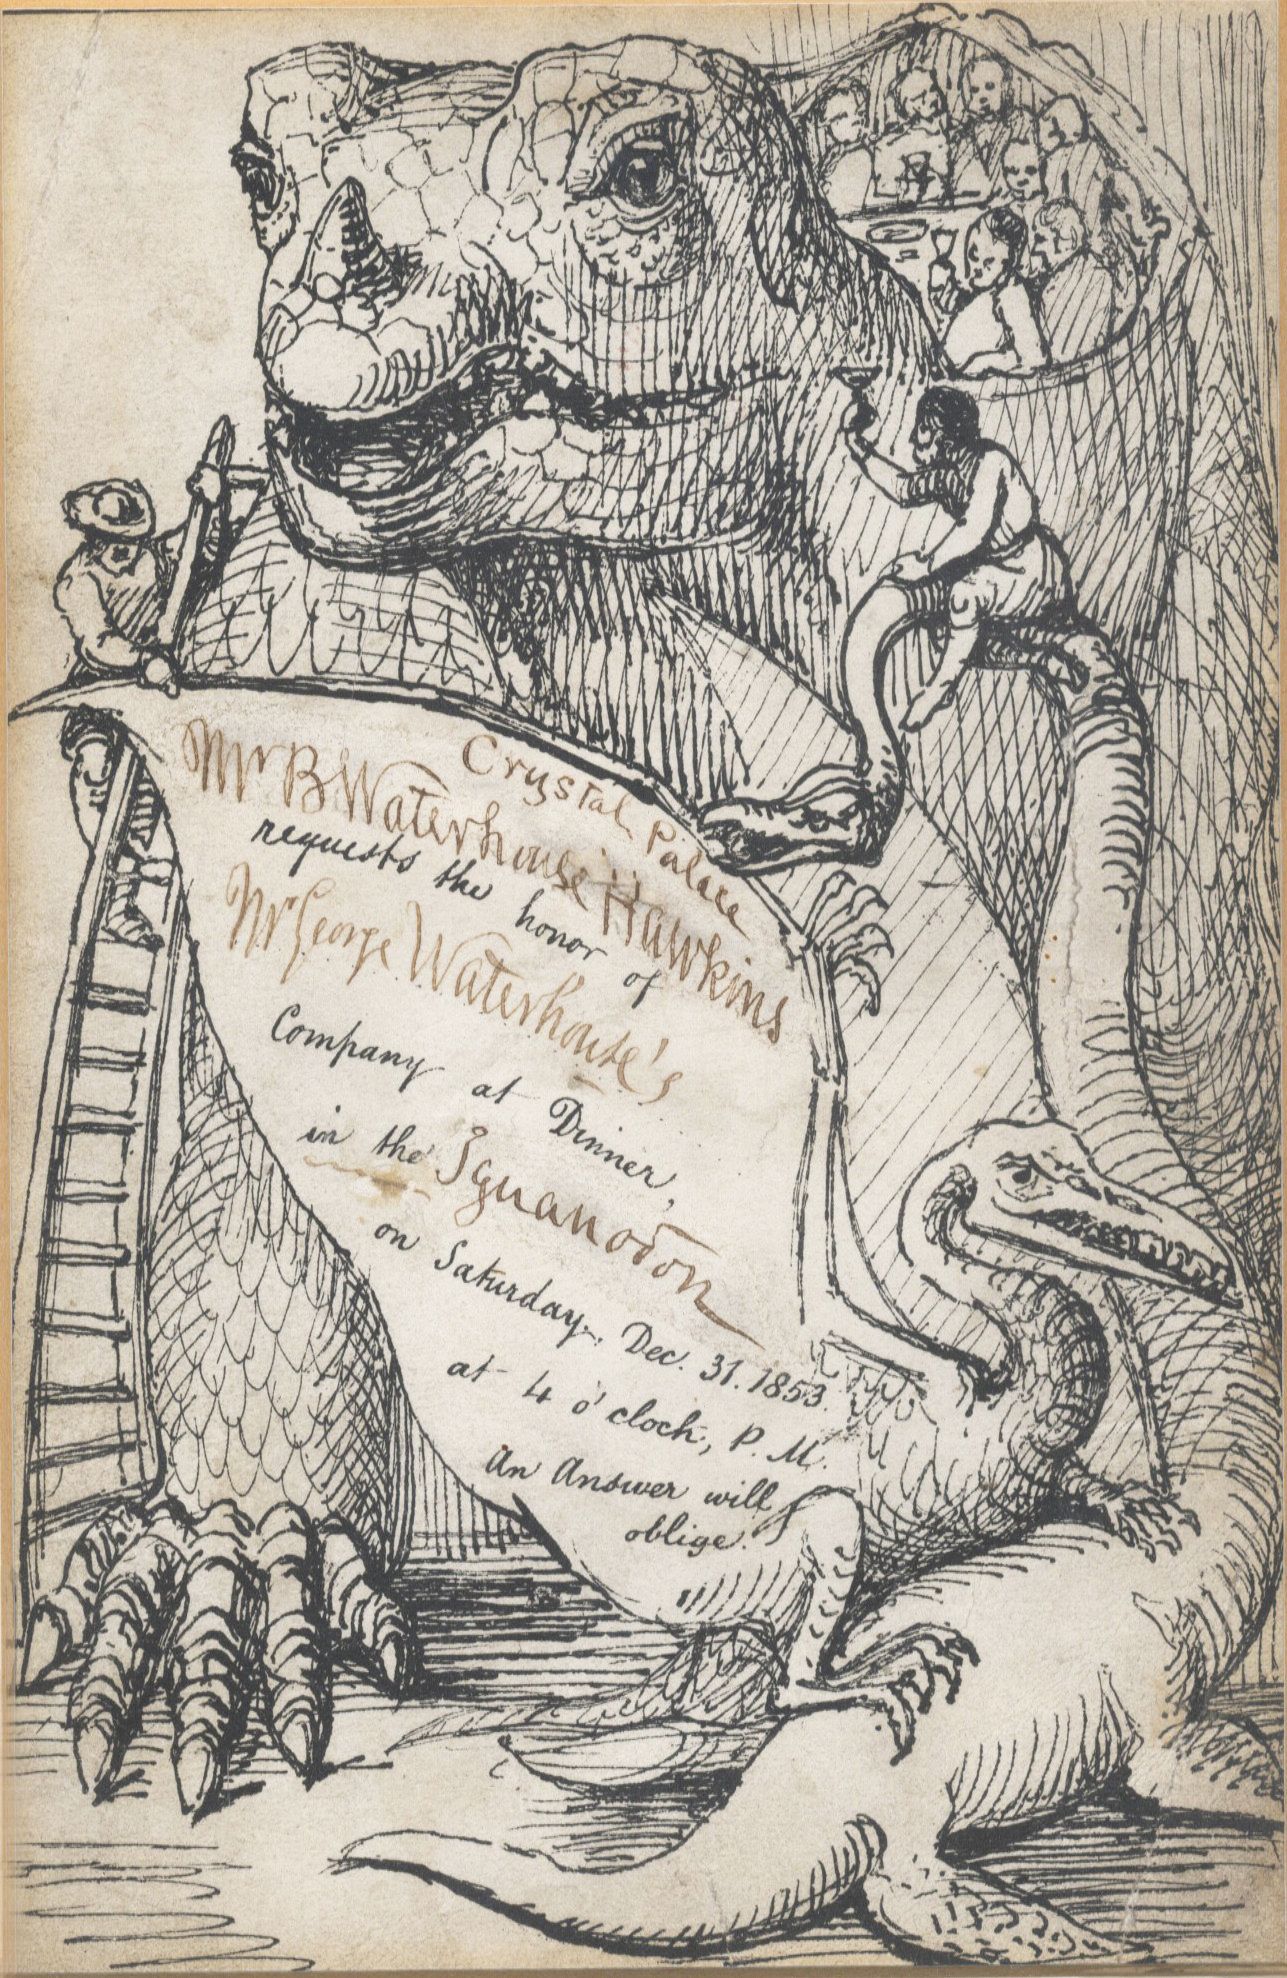 Crystal Palace
Mr B Waterhouse Hawkins
requests the honor of
Mr George Waterhouse's
Company at Dinner,
in the Iguanodon
on Saturday. Dec. 31. 1853.
at 4 o'clock, P. M.
An Answer will
oblige.